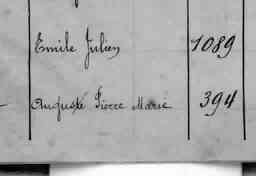 Emile Julien 1089
Auguste Pierre Marie 394